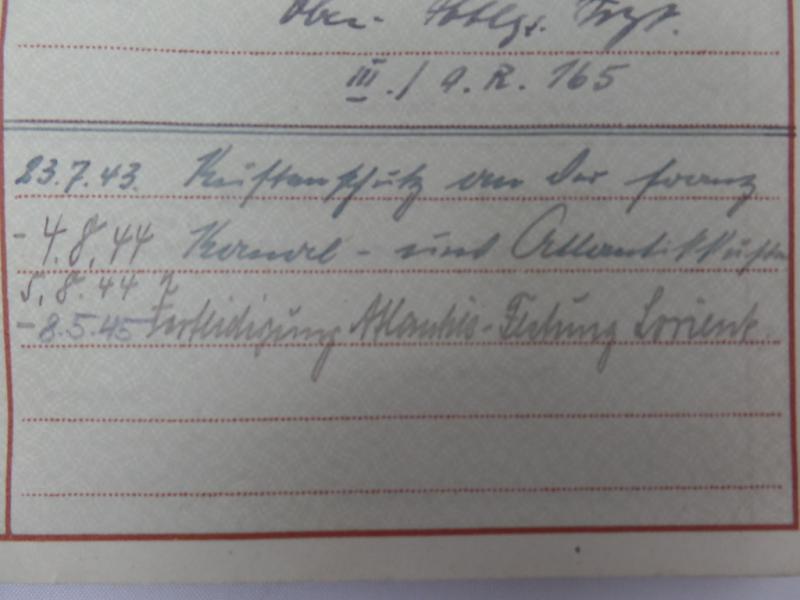 Ober-
III./A.R. 165
23.7.43. Küstenschutz an der franz
- 4.8.44 Kanal- und Atlantikküste
5.8.44
- 8.5.45 Verteidigung Atlantik-Festung Lorient.